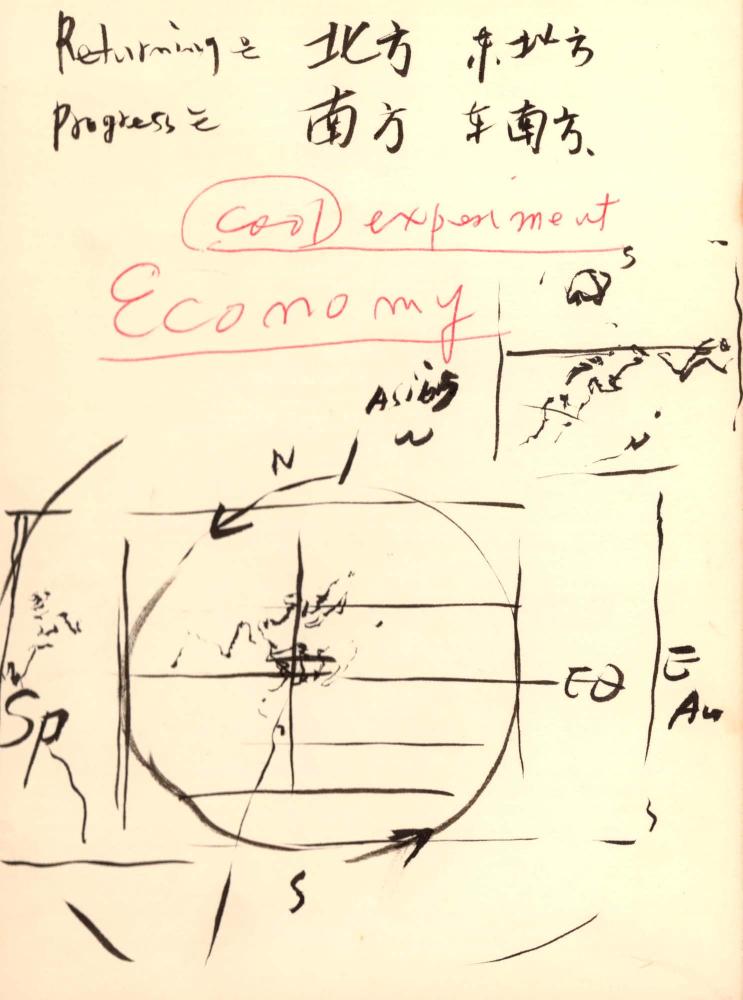 Returning = 北方 东北方
Progress = 南方 东南方
cool experiment
Economy
S
N
N
EQ
E
Sp
Au
S
S